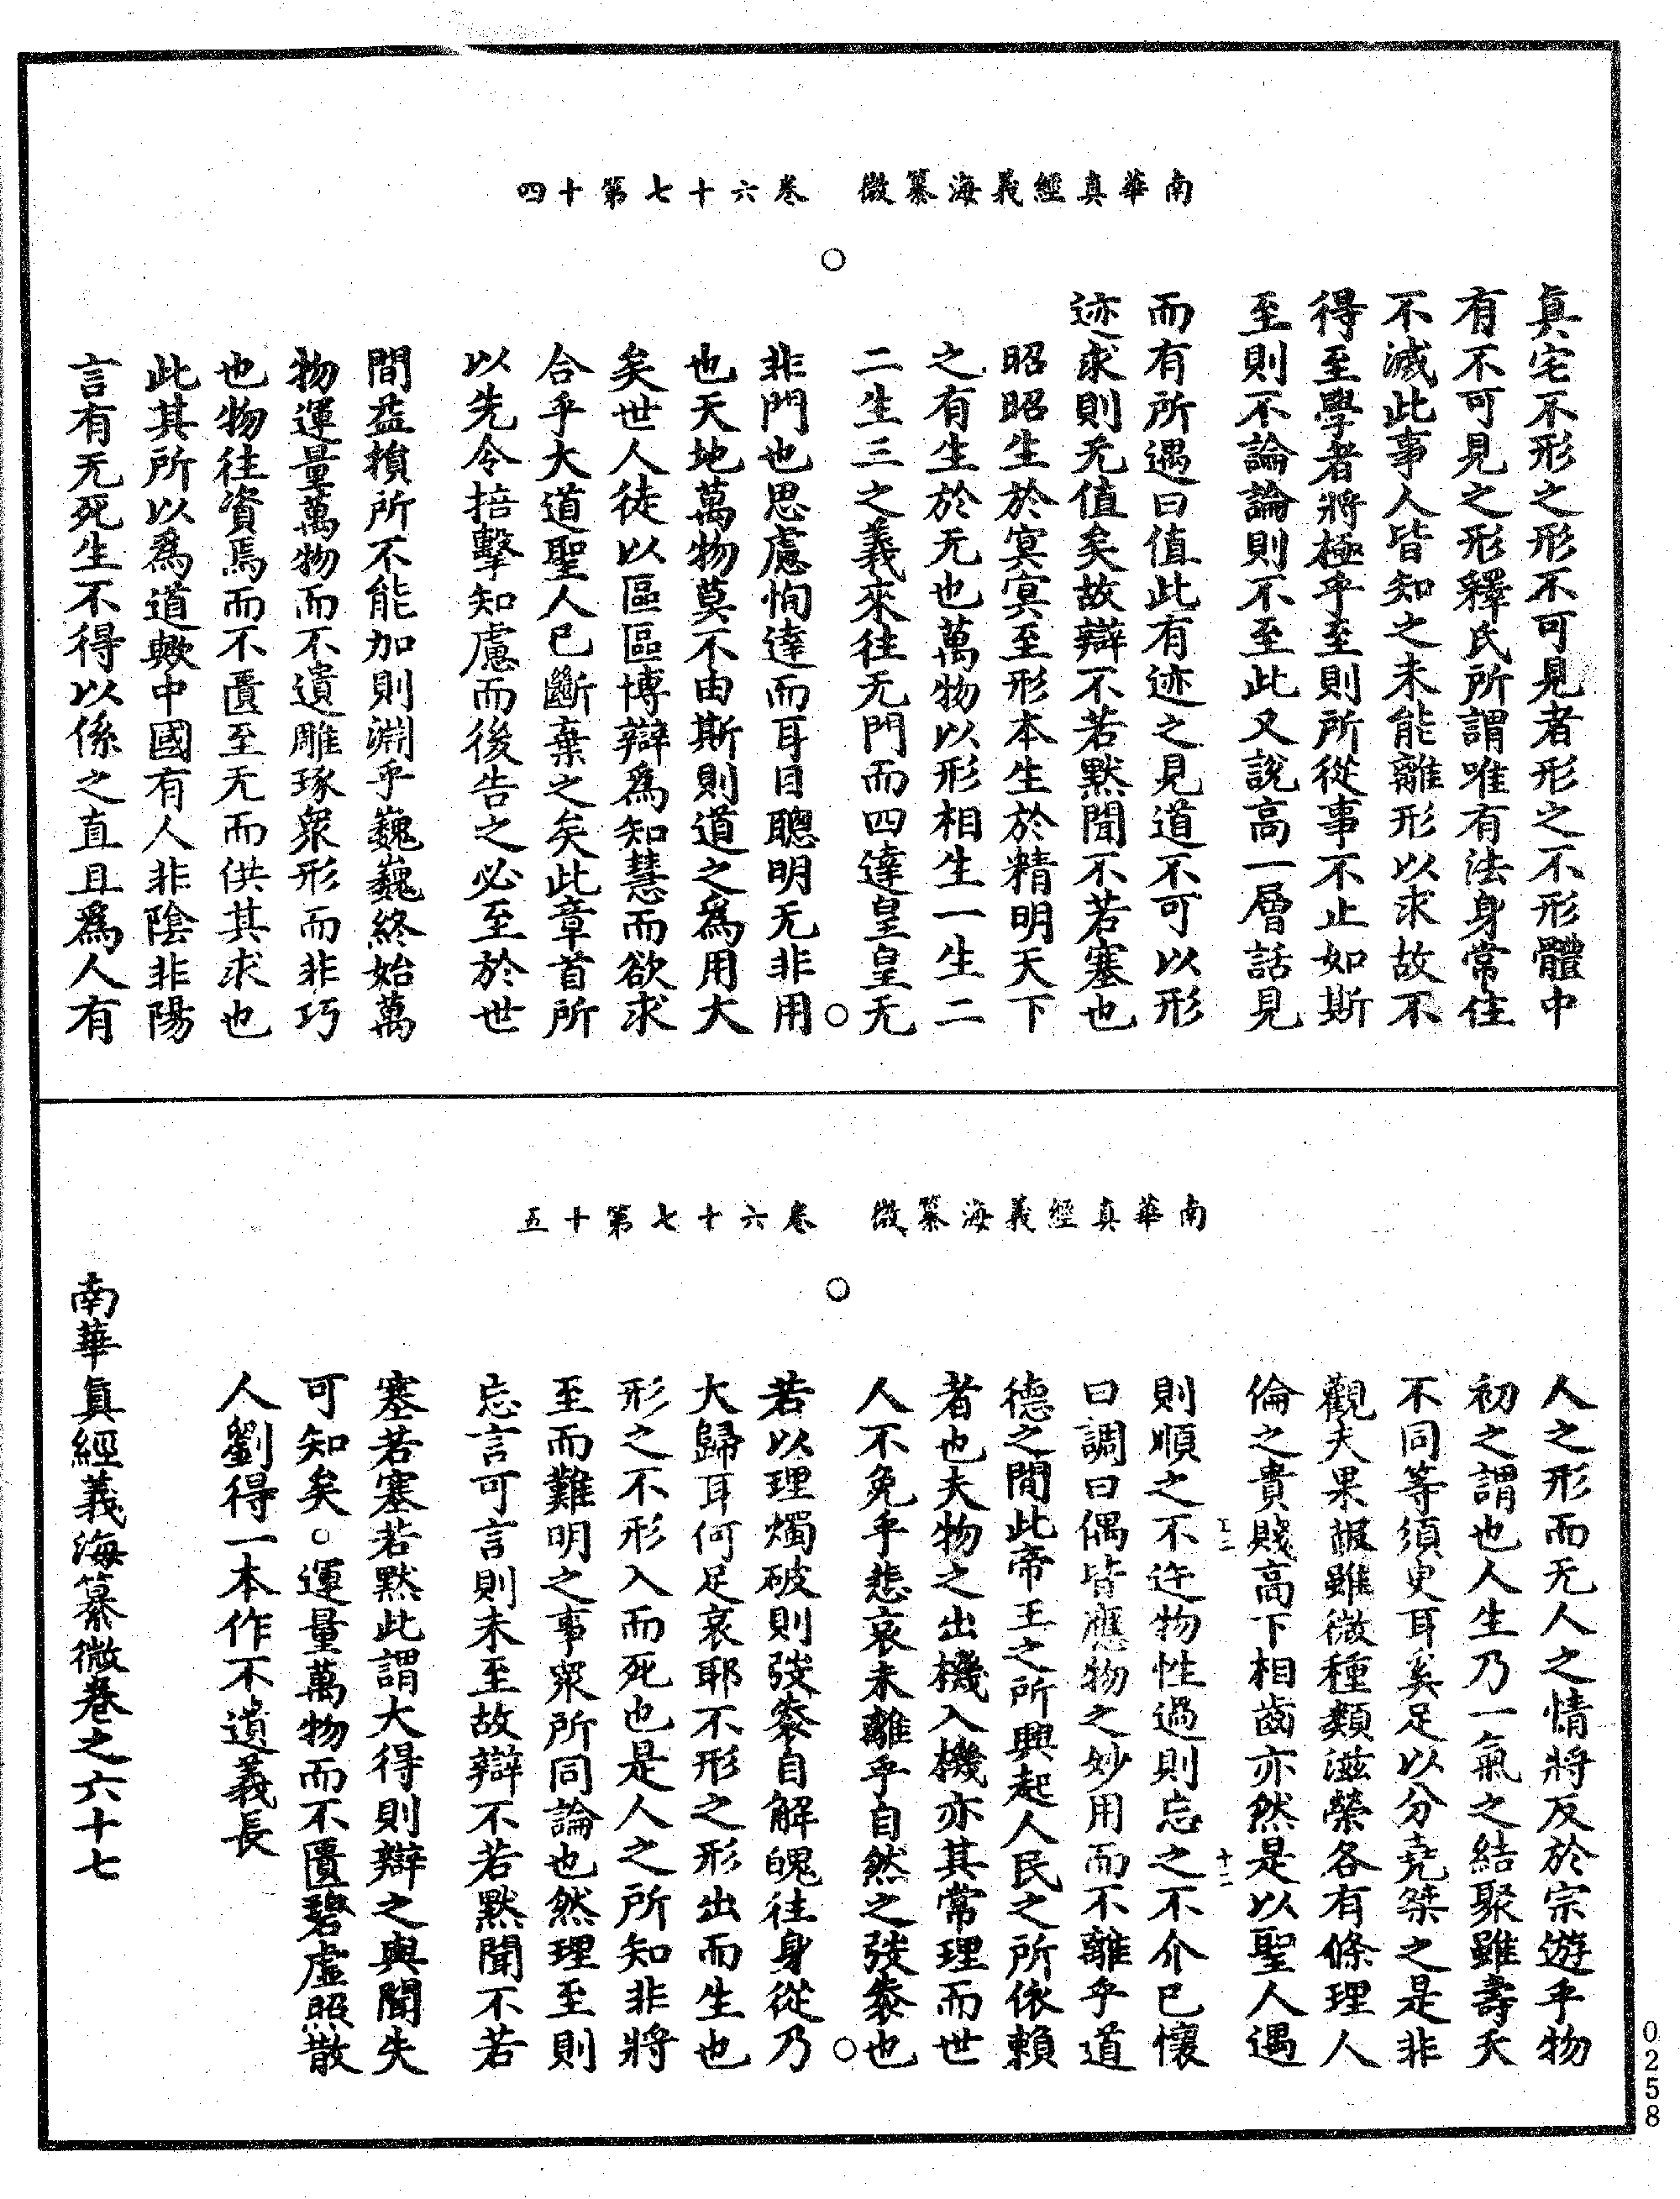 南華真經義海纂微　卷六十七第十四
真宅不形之形不可見者形之不形體中
有不可見之形釋氏所謂唯有法身常住
不滅此事人皆知之未能離形以求故不
得至學者將極乎至則所從事不止如斯
至則不論論則不至此又說高一層話見
而有所遇曰值此有迹之見道不可以形
迹求則无值矣故辯不若默聞不若塞也
昭昭生於冥冥至形本生於精明天下
之有生於无也萬物以形相生一生二
二生三之義來往无門而四達皇皇无
非門也思慮恂達而耳目聰明无非用
也天地萬物莫不由斯則道之為用大
矣世人徒以區區博辯為知慧而欲求
合乎大道聖人已斷棄之矣此章首所
以先令掊擊知慮而後告之必至於世
間益損所不能加則淵乎巍巍終始萬
物運量萬物而不遺雕琢衆形而非巧
也物往資焉而不匱至无而供其求也
此其所以為道歟中國有人非陰非陽
言有无死生不得以係之直且為人有
南華真經義海纂微　卷六十七第十五
人之形而无人之情將反於宗遊乎物
初之謂也人生乃一氣之結聚雖壽夭
不同等須臾耳奚足以分堯桀之是非
觀夫果蓏雖微種類滋榮各有條理人
倫之貴賤高下相齒亦然是以聖人遇
則順之不迕物性過則忘之不介已懷
曰調曰偶皆應物之妙用而不離乎道
德之間此帝王之所興起人民之所依賴
者也夫物之出機入機亦其常理而世
人不免乎悲哀未離乎自然之弢袠也
若以理燭破則弢袠自解魄往身從乃
大歸耳何足哀耶不形之形出而生也
形之不形入而死也是人之所知非將
至而難明之事衆所同論也然理至則
忘言可言則未至故辯不若默聞不若
塞若塞若默此謂大得則辯之與聞失
可知矣○運量萬物而不匱碧虛照散
人劉得一本作不遺義長
南華真經義海纂微卷之六十七
0258